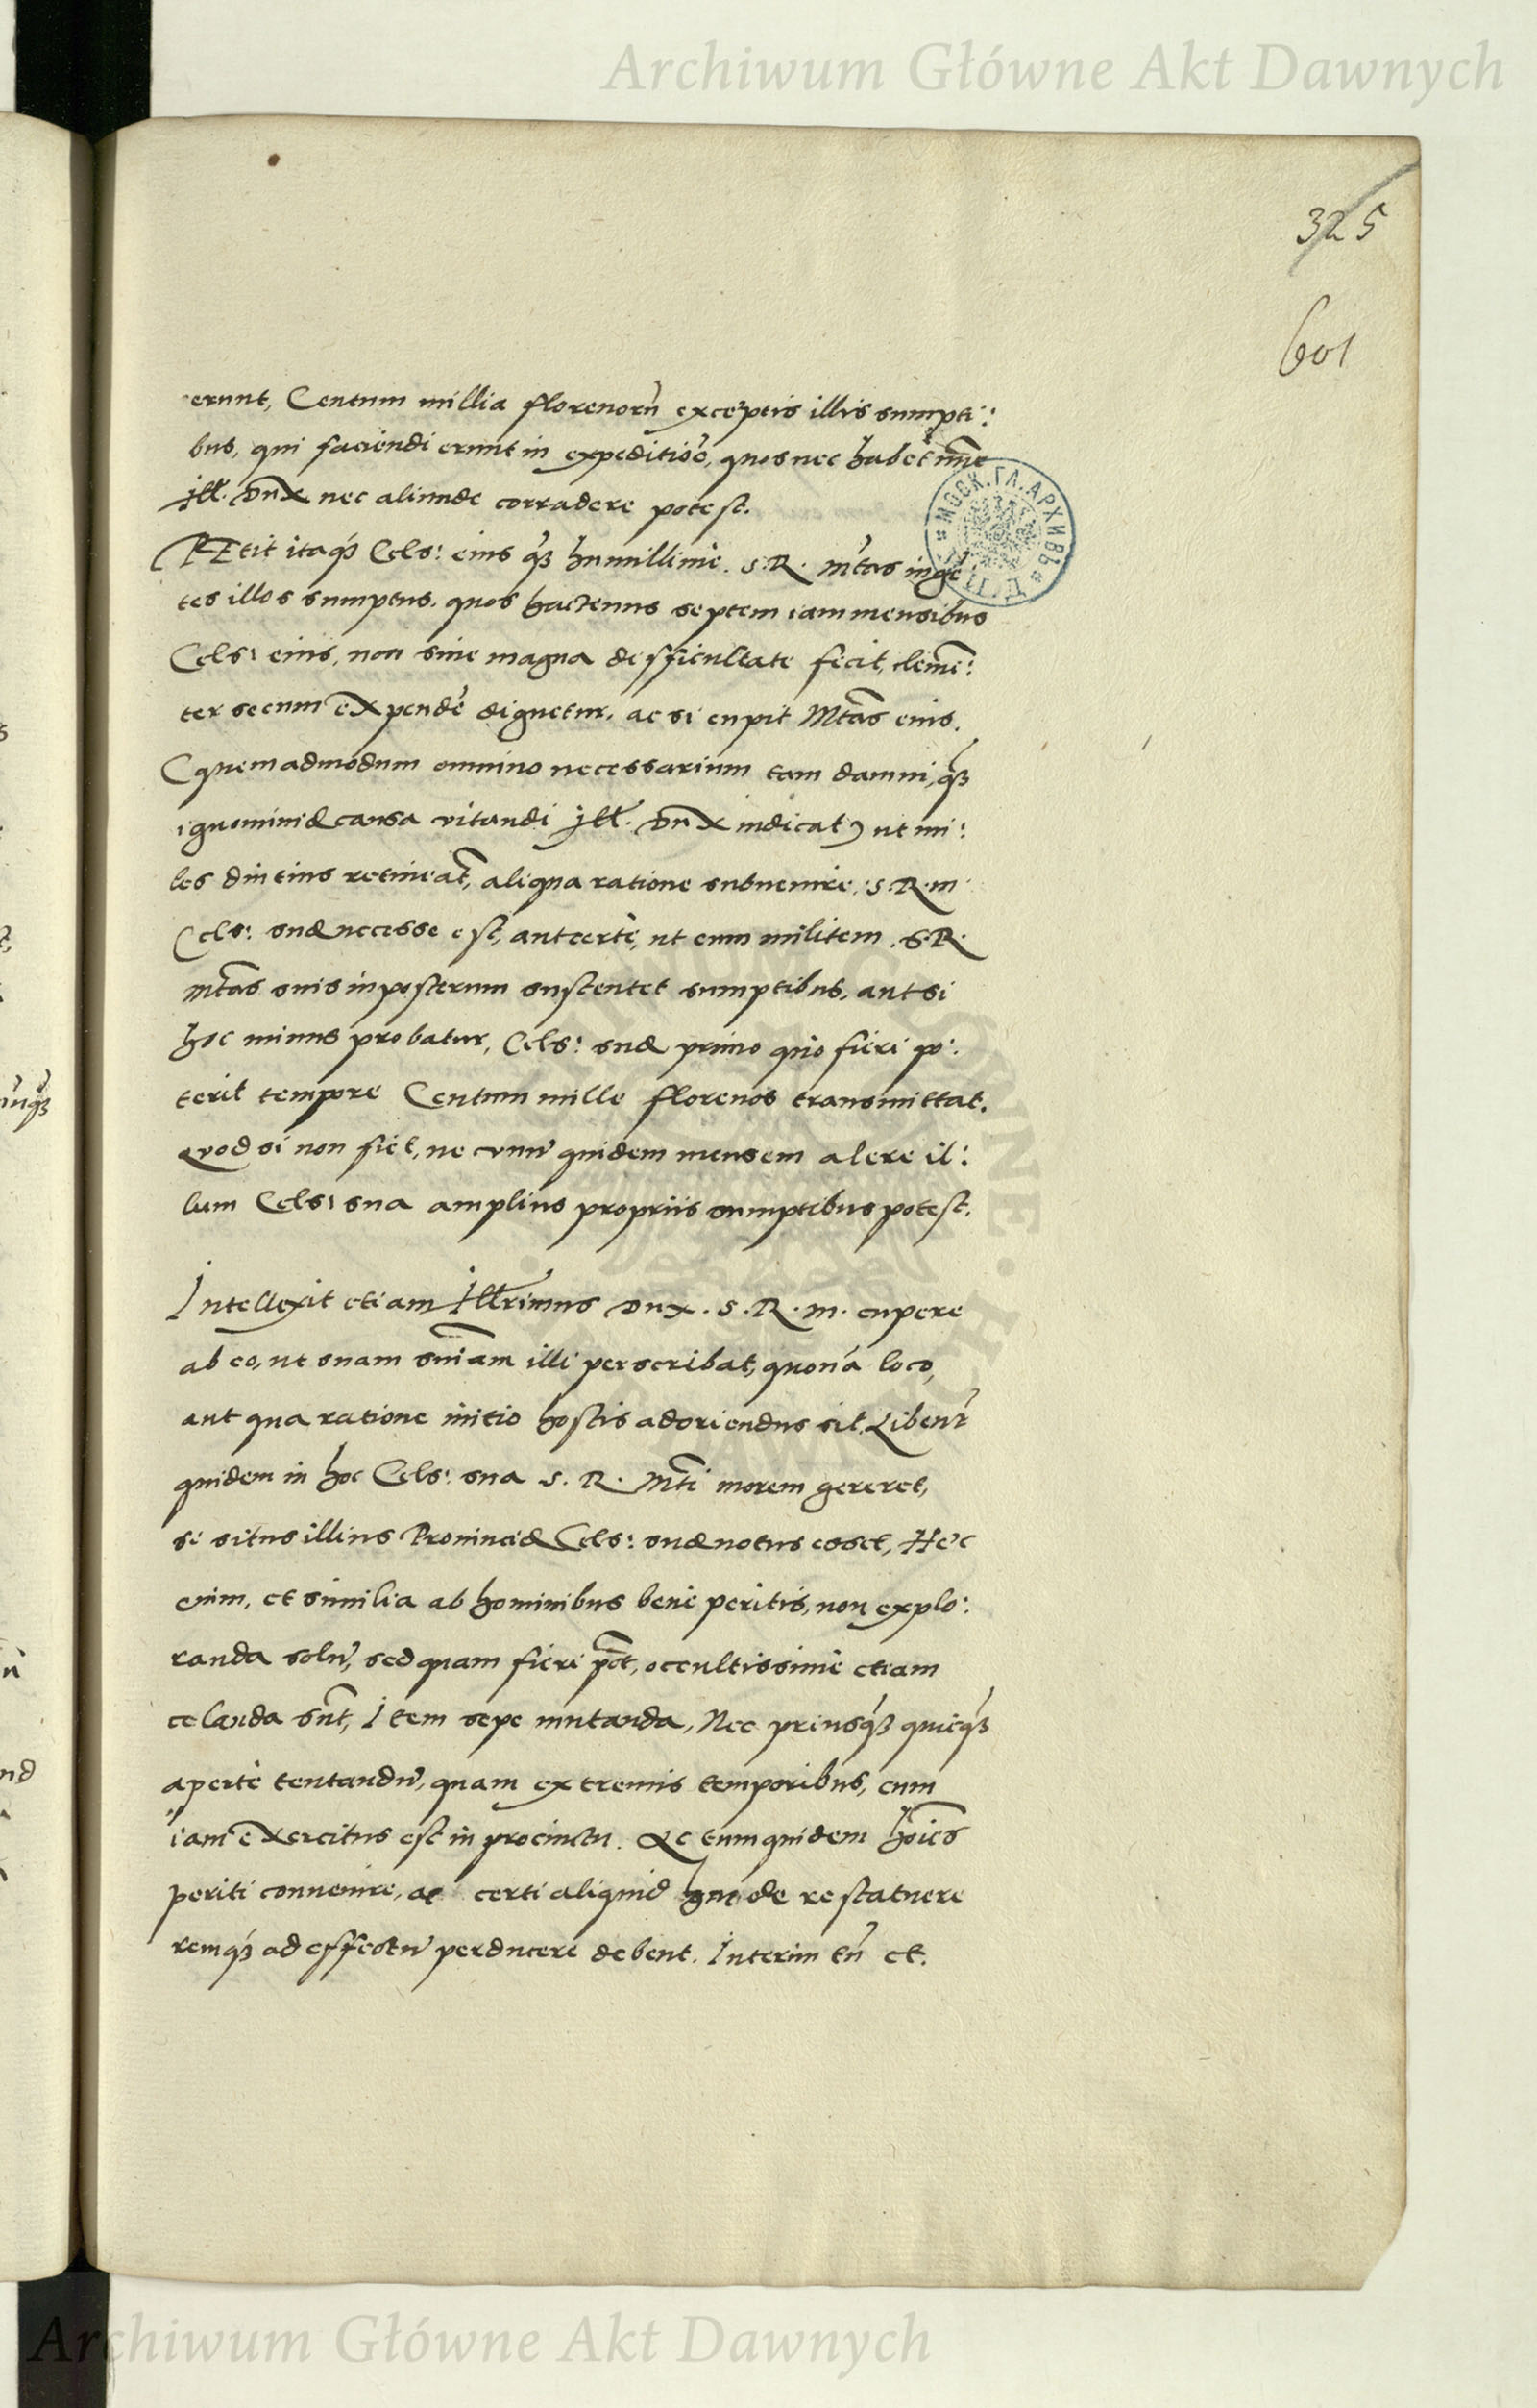 Archiwum Główne Akt Dawnych
325
601
erunt, Centum millia florenorũ exceptis illis sumpti:
bus, qui faciendi erunt in expeditiõe, quos nec habet nũc
Ill. Dux nec aliunde corradere potest.
PEtit itaq́ꝫ Cels: eius q̃ꝫ humillime. S. R. Mtas ingẽ
tes illos sumptus. quos hactenus septem iam mensibus
Cels: eius, non sine magna difficultate fecit, clemẽ:
ter secum expendẽ dignetur. ac si cupit Mtas eius.
(quemadmodum omnino necessarium tam damni, q̃ꝫ
ignominiæ causa vitandi Ill. Dux iudicat) ut mi:
les diutius retineat̃, aliqua ratione subuenire. S. R. M
Cels: suæ necesse est, aut certè, ut eum militem S. R.
Mtas suis inposterum sustentet sumptibus, aut si
hoc minus probatur, Cels: suæ primo quo fieri po:
terit tempore Centum mille florenos transmittat.
Quod si non fiet, ne vnũ quidem mensem alere il:
lum Cels: sua amplius propriis sumptibus potest.
Intellexit etiam Illrimus Dux. S. R. M. cupere
ab eo, ut suam sniam illi perscribat, quonã loco,
aut qua ratione initio hostis adoriendus sit. Libent̃
quidem in hoc Cels: sua S. R. Mti morem gereret,
si situs illius Prouinciæ Cels: suæ notus esset, Hec
enim, et similia ab hominibus bene peritis, non explo:
randa solũ, sed quam fieri pot, occultissimè etiam
celanda snt, Item sepe mutanda, Nec priusq̃ꝫ quicq̃ꝫ
apertè tentandũ, quam extremis temporibus, cum
iam exercitus est in procinctu. Ac tum quidem hoĩes
periti conuenire, ac certi aliquid hac de re statuere
remq́ꝫ ad effectũ perducere debent. Interim tñ et.
Archiwum Główne Akt Dawnych